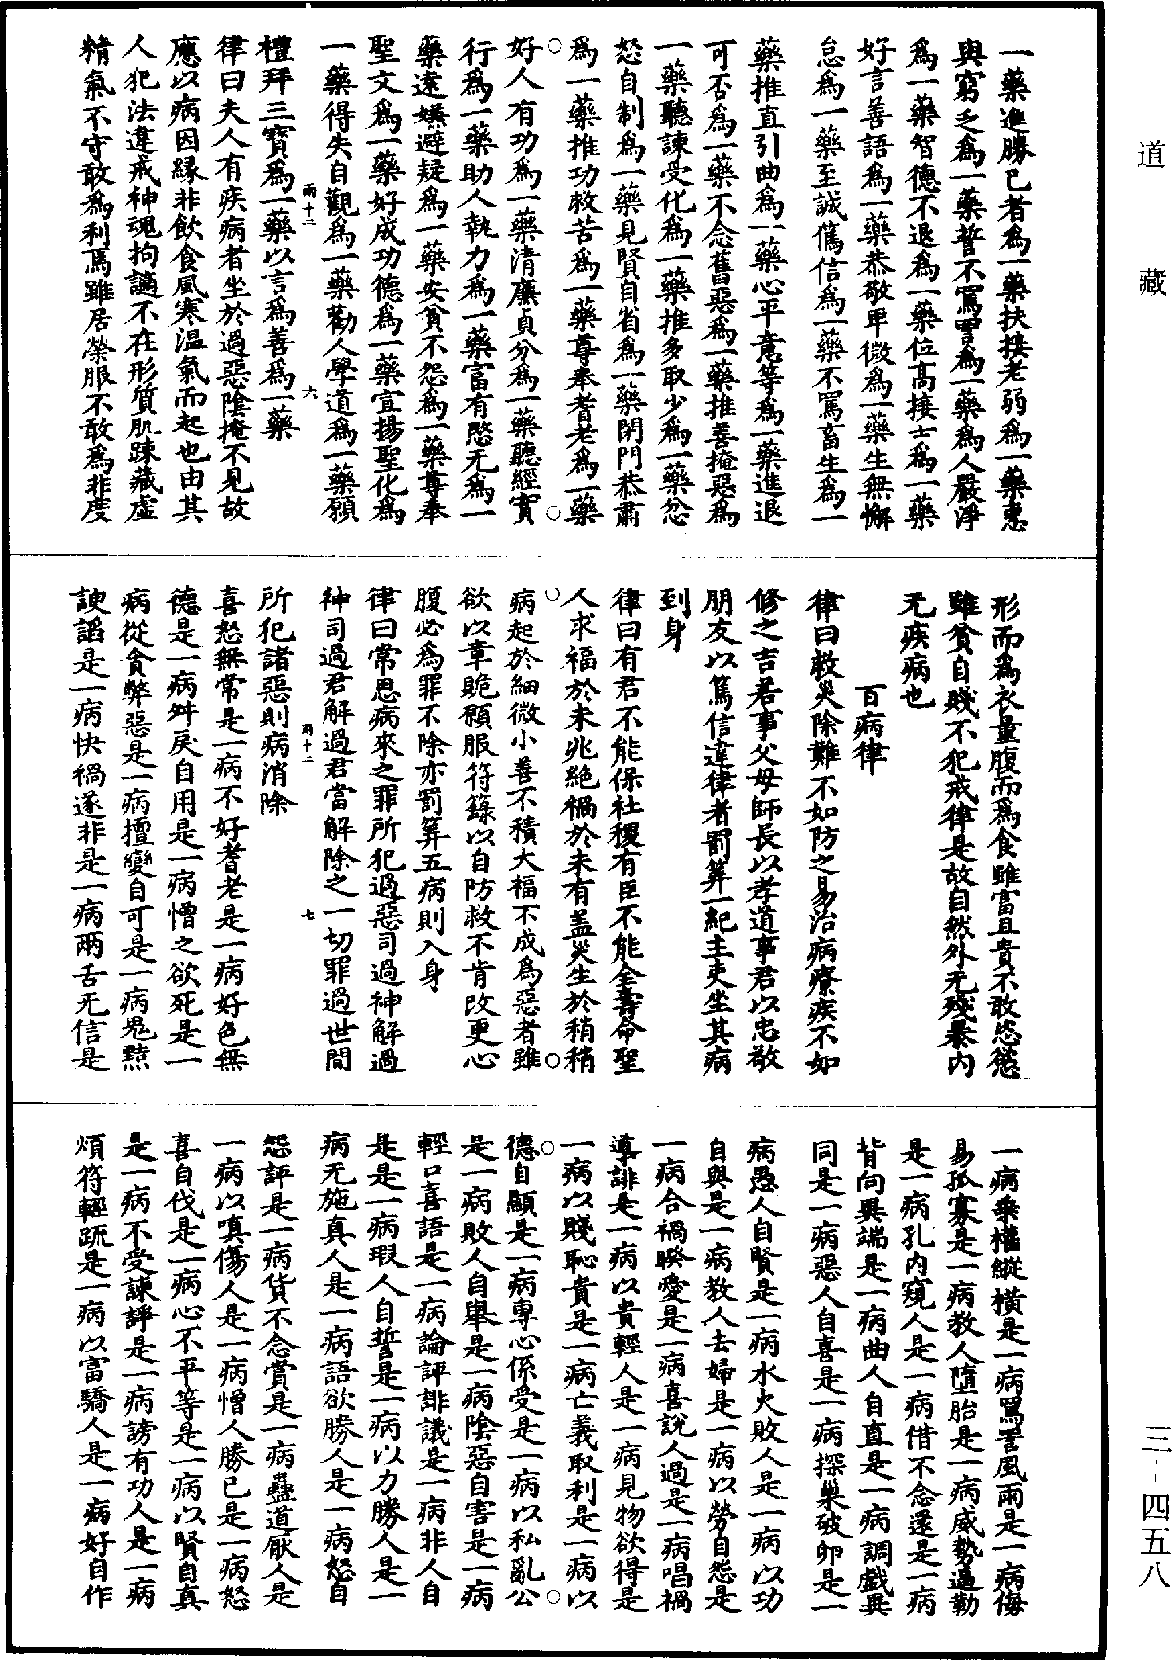 道藏
一藥進勝己者爲一藥扶接老弱爲一藥惠
與窮乏爲一藥誓不罵詈爲一藥爲人嚴淨
爲一藥智德不退爲一藥位高接士爲一藥
好言善語爲一藥恭敬卑微爲一藥生無懈
怠爲一藥至誠篤信爲一藥不罵畜生爲一
藥推直引曲爲一藥心平意等爲一藥進退
可否爲一藥不念舊惡爲一藥推善掩惡爲
一藥聽諫受化爲一藥推多取少爲一藥忿
怒自制爲一藥見賢自省爲一藥閉門恭肅
爲一藥推功救苦爲一藥尊奉耆老爲一藥
好人有功爲一藥清廉貞分爲一藥聽經實
行爲一藥助人執力爲一藥富有愍无爲一
藥遠嫌避疑爲一藥安貧不怨爲一藥尊奉
聖文爲一藥好成功德爲一藥宣揚聖化爲
一藥得失自觀爲一藥勸人學道爲一藥願
兩十二 六
禮拜三寶爲一藥以言爲善爲一藥
律曰夫人有疾病者坐於過惡陰掩不見故
應以病因緣非飲食風寒溫氣而起也由其
人犯法違戒神魂拘謫不在形質肌踈藏虛
精氣不守敢爲利焉雖居榮服不敢爲非度
形而爲衣量腹而爲食雖富且貴不敢恣慾
雖貧自賤不犯戒律是故自然外无殘暴內
无疾病也
百病律
律曰救災除難不如防之易治病療疾不如
修之吉若事父母師長以孝道事君以忠敬
朋友以篤信違律者罰筭一紀主吏坐其病
到身
律曰有君不能保社稷有臣不能全壽命聖
人求福於未兆絕禍於未有盖災生於稍稍
病起於細微小善不積大福不成爲惡者雖
欲以章賄願服符籙以自防救不肯改更心
腹必爲罪不除亦罰筭五病則入身
律曰常思病來之罪所犯過惡司過神解過
神司過君解過君當解除之一切罪過世間
兩十二 七
所犯諸惡則病消除
喜怒無常是一病不好耆老是一病好色無
德是一病舛戾自用是一病憎之欲死是一
病從貪弊惡是一病擅變自可是一病鬼黠
諛謟是一病快禍遂非是一病兩舌无信是
一病乘權縱橫是一病罵詈風雨是一病侮
易孤寡是一病教人墮胎是一病威勢逼勒
是一病孔內窺人是一病借不念還是一病
背向異端是一病曲人自直是一病調戲共
同是一病惡人自喜是一病探巢破卵是一
病愚人自賢是一病水火敗人是一病以功
自與是一病教人去婦是一病以勞自怨是
一病合禍睽愛是一病喜說人過是一病唱禍
導誹是一病以貴輕人是一病見物欲得是
一病以賤恥貴是一病亡義取利是一病以
德自顯是一病專心係受是一病以私亂公
是一病敗人自舉是一病陰惡自害是一病
輕口喜語是一病論評誹議是一病非人自
是是一病瑕人自譽是一病以力勝人是一
病无施真人是一病語欲勝人是一病怒自
怨評是一病貨不念賞是一病蠱道厭人是
一病以嗔傷人是一病憎人勝己是一病怒
喜自伐是一病心不平等是一病以賢自真
是一病不受諫評是一病謗有功人是一病
煩符輕疏是一病以富驕人是一病好自作
三--四五八